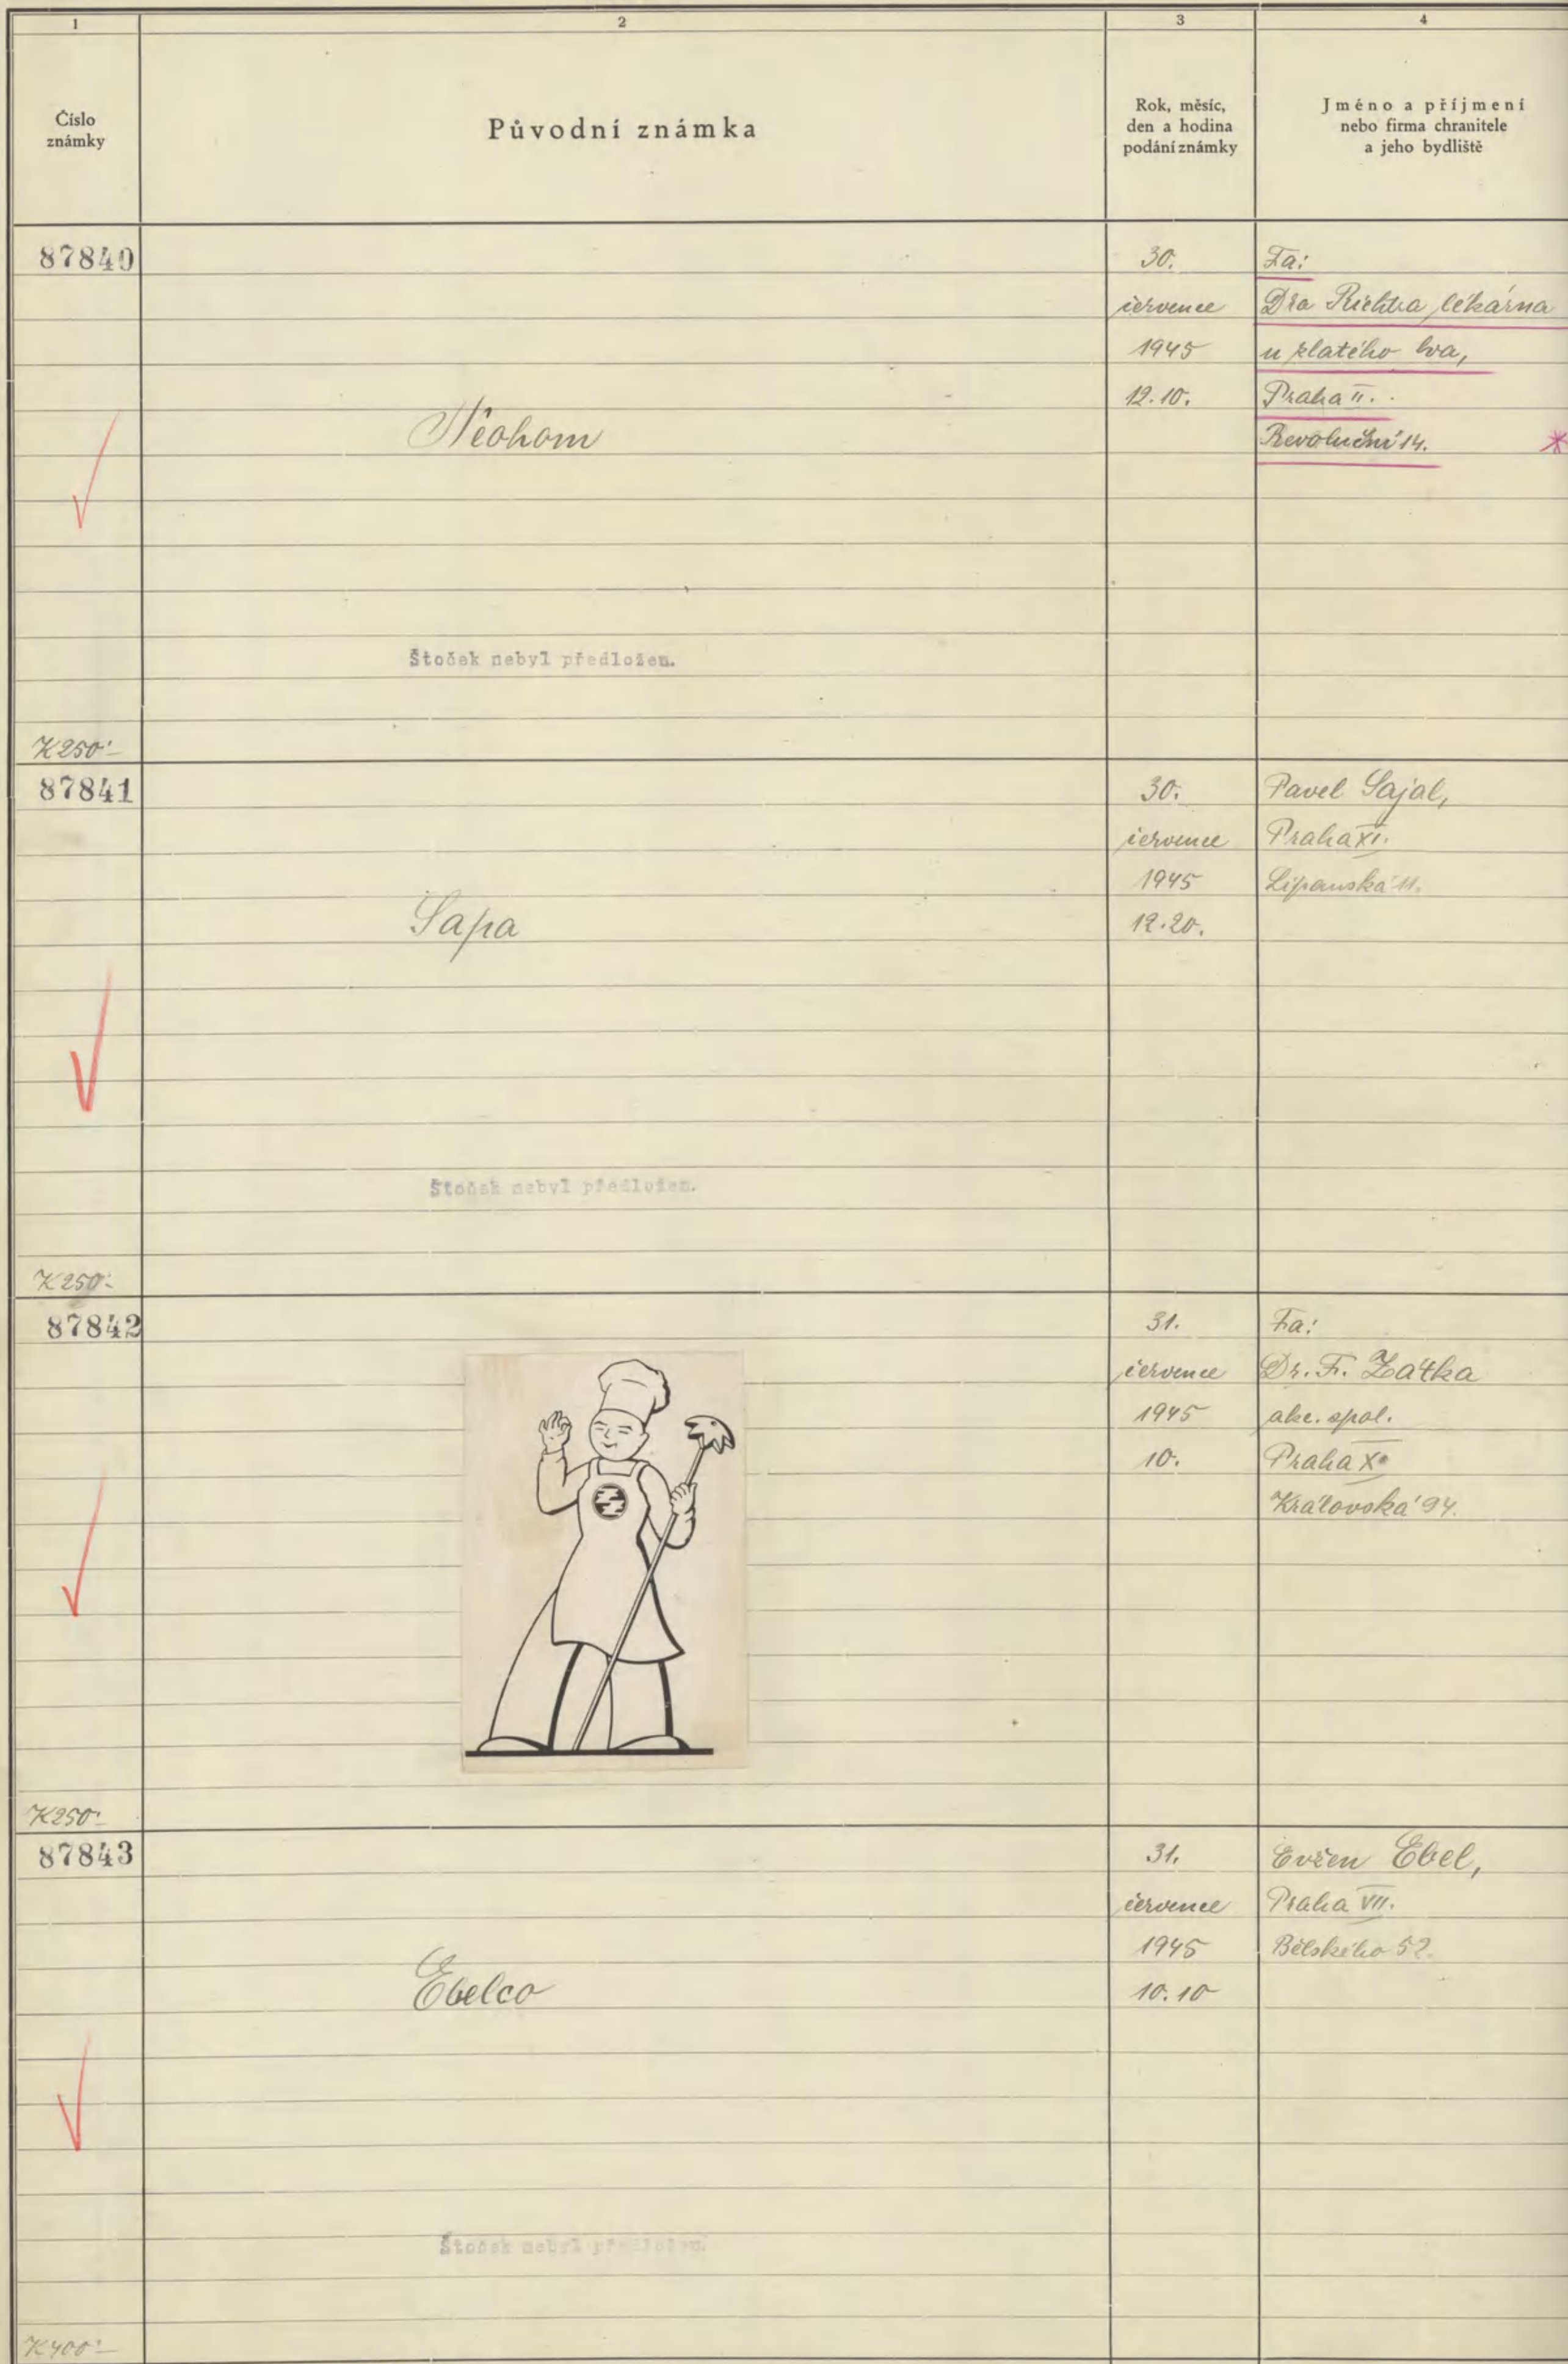 1
2
3
4
Číslo
známky
Původní známka
Rok, měsíc,
den a hodina
podání známky
Jméno a příjmení
nebo firma chranitele
a jeho bydliště
87840
Neohom
Štoček nebyl předložen.
K 250·-
30.
července
1945
12.10.
Fa:
Dra Richtra lékárna
u zlatého lva,
Praha II.
Revoluční 14.
87841
Sapa
Štoček nebyl předložen.
K 250·-
30.
července
1945
12.20.
Pavel Sajal,
Praha XI.
Lipanská 11.
87842
K 250·-
31.
července
1945
10.
Fa:
Dr. F. Zátka
akc. spol.
Praha X.
Královská 94.
87843
Ebelco
Štoček nebyl předložen.
K 400·-
31.
července
1945
10.10
Evžen Ebel,
Praha VII.
Bělského 52.